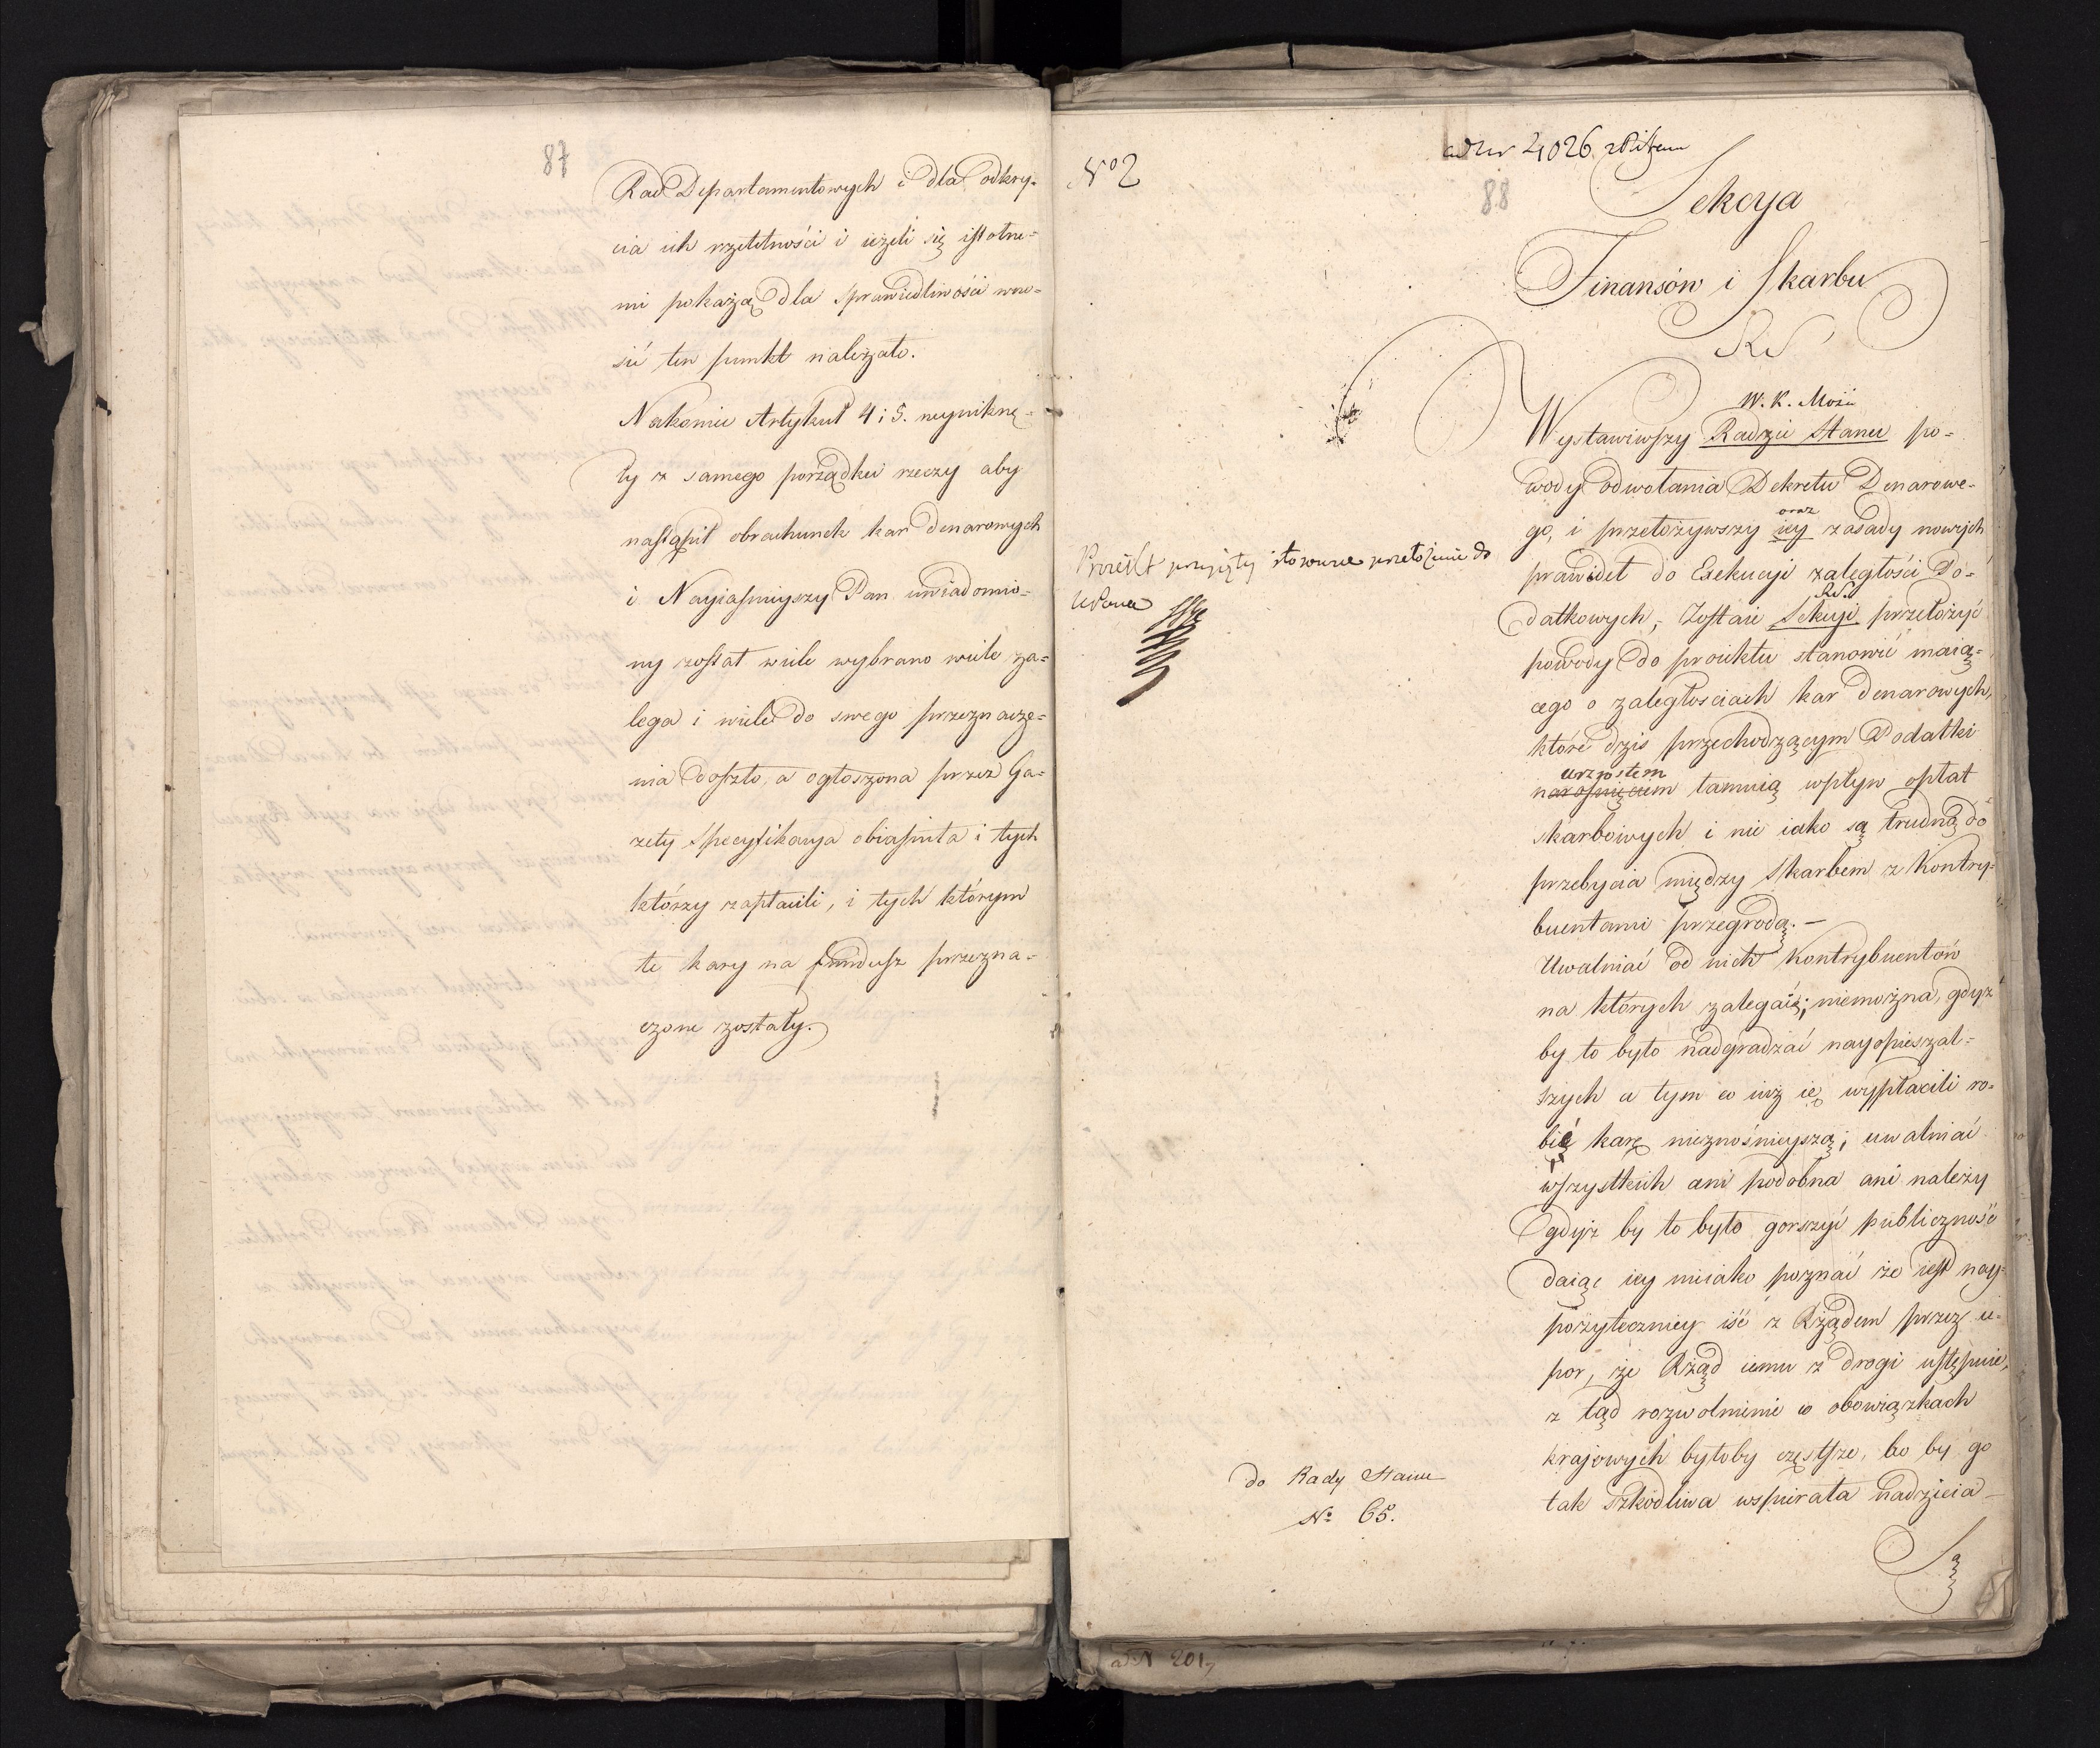 87
Rad Departamentowych i dla odkry-
cia ich rzetelności i ieżeli się istotne-
mi pokażą dla sprawiedliwości wnie-
sić ten punkt należało.
Nakoniec Artykuł 4 i 5. wyniknę-
ły z samego porządku rzeczy aby
nastąpił obrachunek kar denarowych
i Nayiaśnieyszy Pan uwiadomio-
ny został wiele wybrano wiele za-
lega i wiele do swego przeznacze-
nia doszło, a ogłoszona przez Ga-
zety specyfikacya obiaśniła i tych
którzy zapłacili, i tych którym
te kary na fundusz przezna-
czone zostały.
No 2
ad Nr 4026
88
Sekcya
Finansów i Skarbu
W. K. Mości
Wystawiwszy Radzie Stanu po-
wody odwołania Dekretu Denarowe-
oraz
go, i przełożywszy iey zasady nowych
prawideł do Exekucyi zaległości Po-
datkowych, Zostaie Sekcyi przełożyć
powody do proiektu stanowić maią-
cego o zaległościach kar denarowych,
które dziś przechodzącym Podatki
wzrostem
narośnięciem tamuią wpływ opłat
skarbowych i nie iako są trudną do
przebycia między Skarbem z Kontry-
buentami przegrodą. —
Uwalniać od nich Kontrybuentów
na których zalegaią; niemożna, gdyż
by to było nadgradzać nayopieszal-
szych a tym co iuż ię wypłacili ro-
bić karę nieznośnieyszą; uwalniać
wszystkich ani podobna ani należy
gdyż by to było gorszyć publiczność
daiąc iey nieiako poznać że iest nay-
pożyteczniey iść z Rządem przez u-
por, że Rząd iemu z drogi ustępuie,
z tąd rozwolnienie w obowiązkach
krajowych byłoby częstsze, bo by go
tak szkodliwa wspierała nadzieia —
Są
Proiekt przyięty stosowne przełożenie do
do Rady Stanu
No 65.
ad N 201